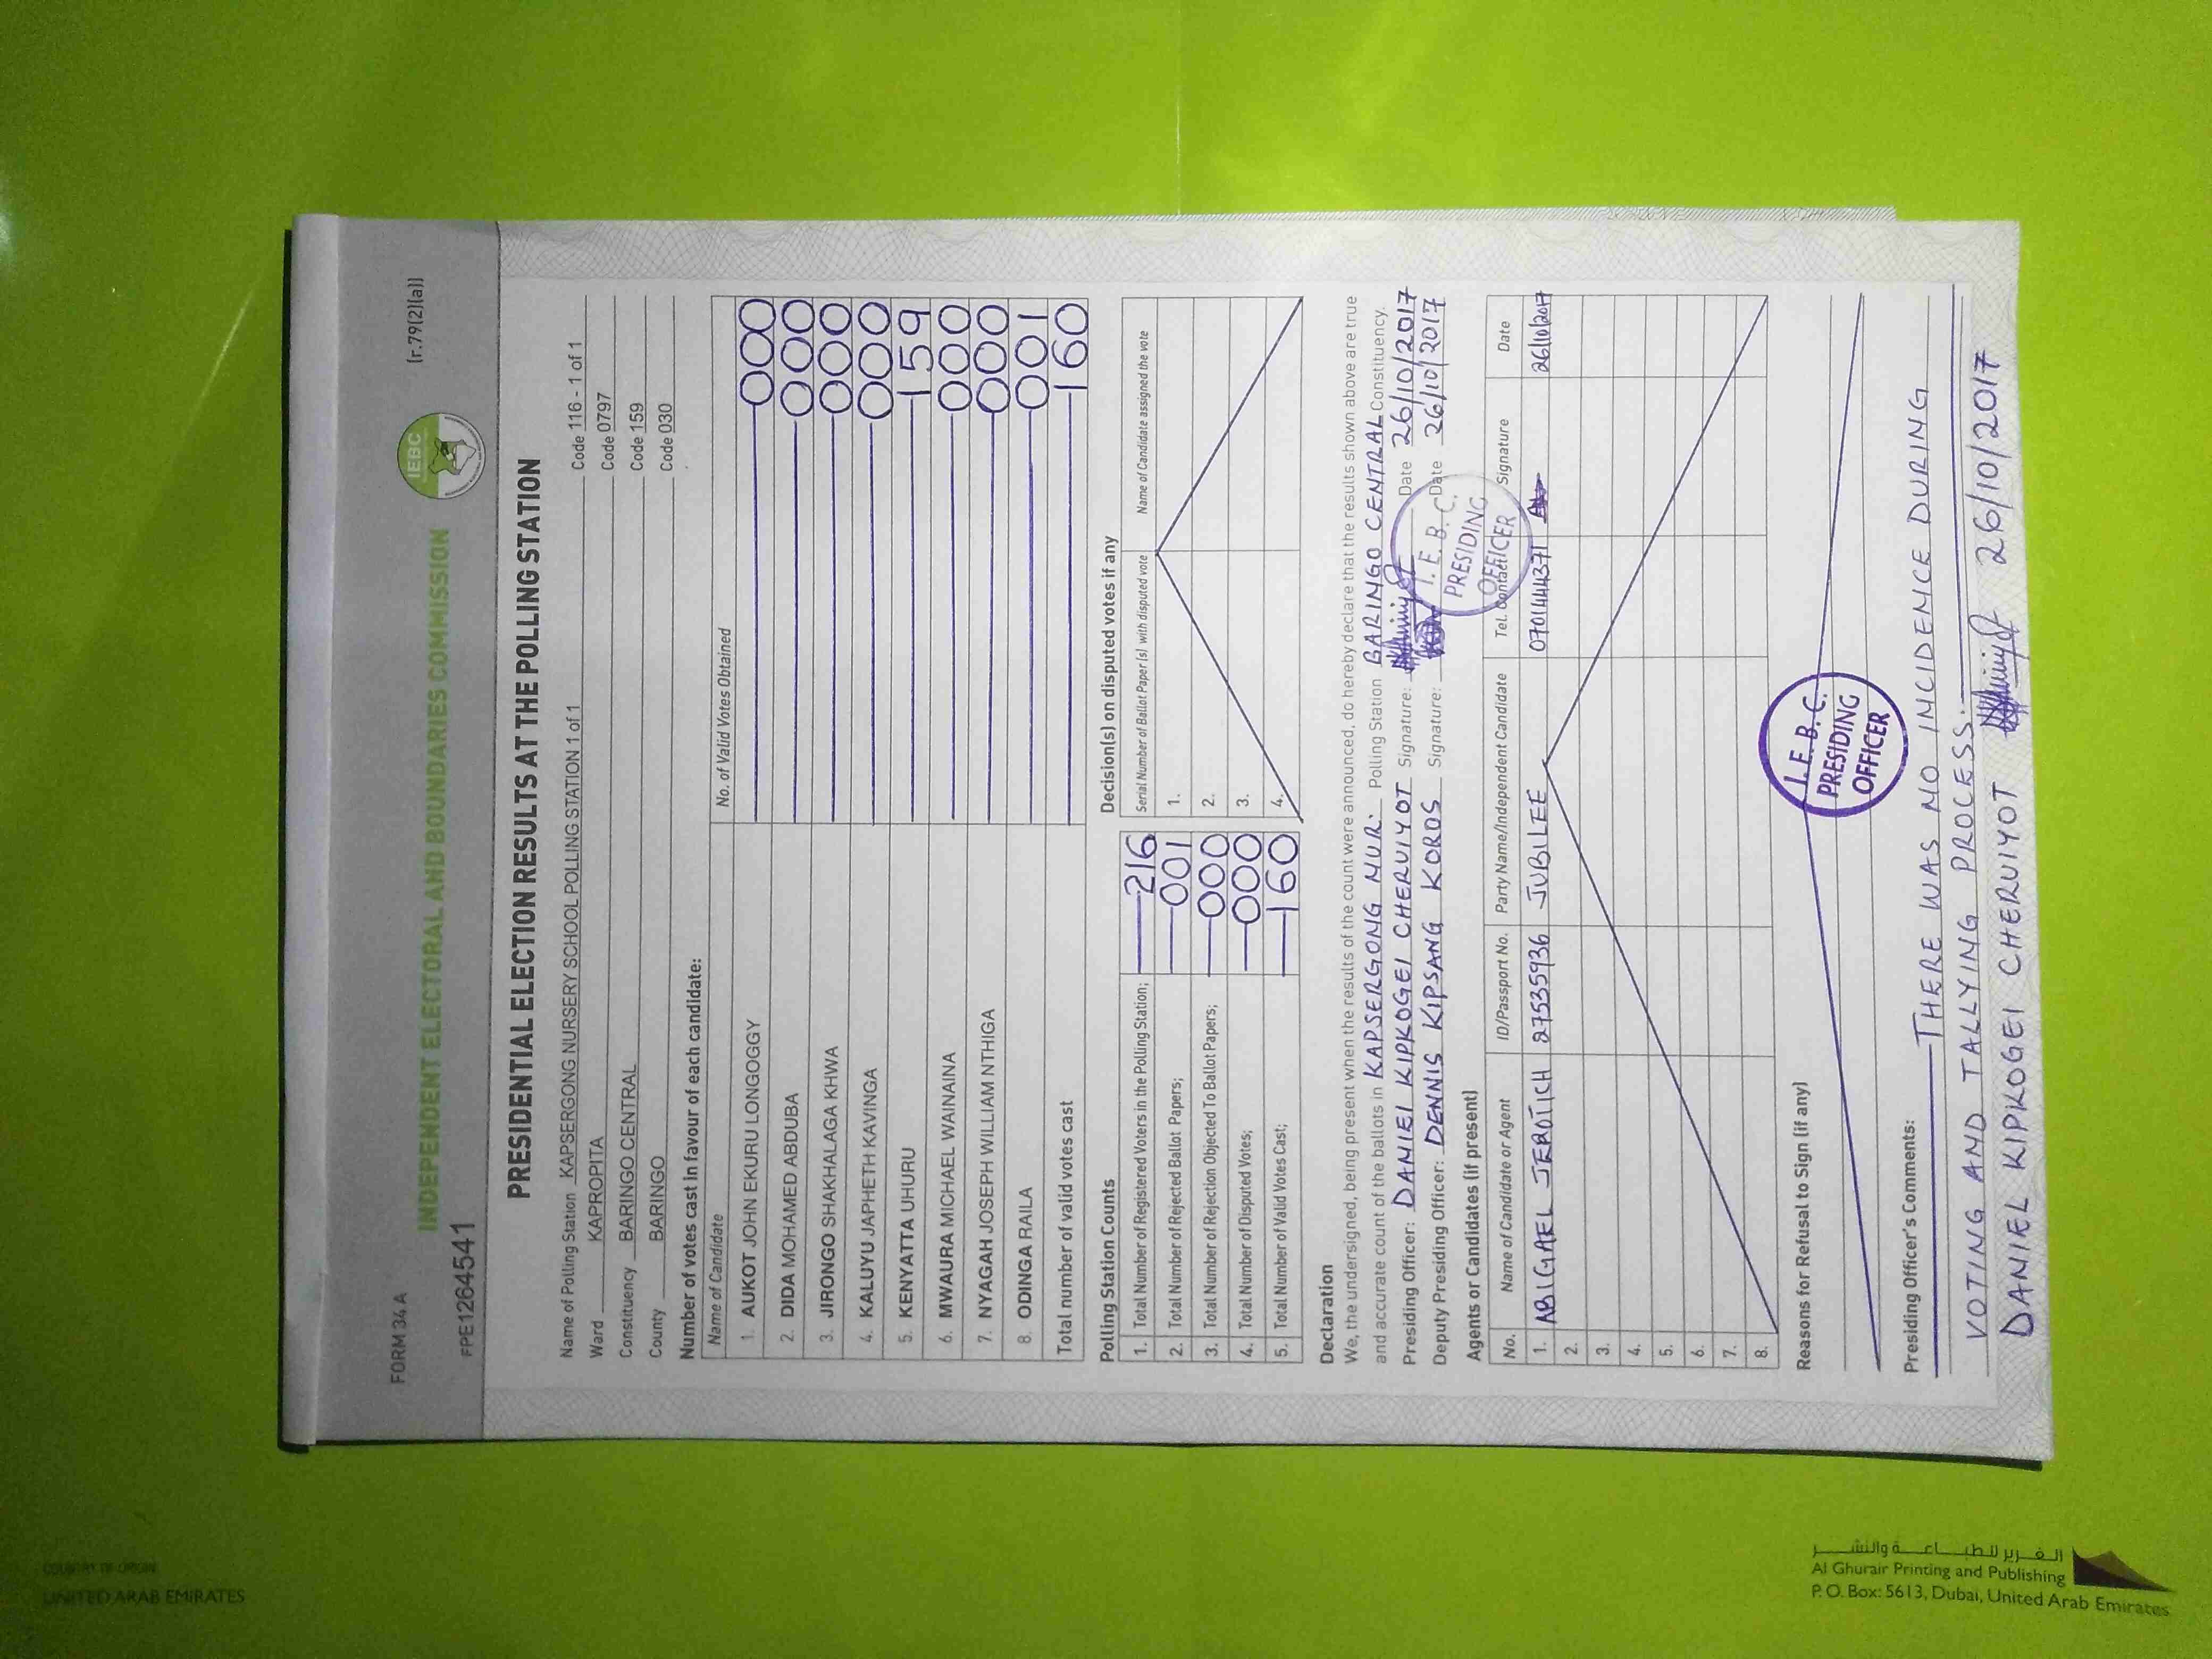 FORM 34 A
(r.79(2)(a))
IEBC
INDEPENDENT ELECTORAL AND BOUNDARIES COMMISSION
FPE12645541
PRESIDENTIAL ELECTION RESULTS AT THE POLLING STATION
Name of Polling Station KAPSERGONG NURSERY SCHOOL POLLING STATION 1 of 1 Code 116 - 1 of 1
Ward KAPROPITA Code 0797
Constituency BARINGO CENTRAL Code 159
County BARINGO Code 030
Number of votes cast in favour of each candidate:
Name of Candidate No. of Valid Votes Obtained
1. AUKOT JOHN EKURU LONGOGGY 000
2. DIDA MOHAMED ABDUBA 000
3. JIRONGO SHAKHALAGA KHWA 000
4. KALUYU JAPHETH KAVINGA 000
5. KENYATTA UHURU 159
6. MWAURA MICHAEL WAINAINA 000
7. NYAGAH JOSEPH WILLIAM NTHIGA 000
8. ODINGA RAILA 001
Total number of valid votes cast 160
Polling Station Counts
1. Total Number of Registered Voters in the Polling Station; 216
2. Total Number of Rejected Ballot Papers; 001
3. Total Number of Rejection Objected To Ballot Papers; 000
4. Total Number of Disputed Votes; 000
5. Total Number of Valid Votes Cast; 160
Decision(s) on disputed votes if any
Serial Number of Ballot Paper (s) with disputed vote Name of Candidate assigned the vote
1.
2.
3.
4.
Declaration
We, the undersigned, being present when the results of the count were announced, do hereby declare that the results shown above are true
and accurate count of the ballots in KAPSERGONG NUR. Polling Station BARINGO CENTRAL Constituency.
Presiding Officer: DANIEL KIPKOGEI CHERUIYOT Signature: Date 26/10/2017
Deputy Presiding Officer: DENNIS KIPSANG KOROS Signature: Date 26/10/2017
I. E. B. C.
PRESIDING
OFFICER
Agents or Candidates (if present)
No. Name of Candidate or Agent ID/Passport No. Party Name/Independent Candidate Tel. Contact Signature Date
1. ABIGAEL JEROTICH 27535936 JUBILEE 0701444371 26/10/2017
2.
3.
4.
5.
6.
7.
8.
Reasons for Refusal to Sign (if any)
I. E. B. C.
PRESIDING
OFFICER
Presiding Officer's Comments:
THERE WAS NO INCIDENCE DURING
VOTING AND TALLYING PROCESS.
DANIEL KIPKOGEI CHERUIYOT 26/10/2017
COUNTRY OF ORIGIN
UNITED ARAB EMIRATES
الغرير للطباعة والنشر
Al Ghurair Printing and Publishing
P. O. Box: 5613, Dubai, United Arab Emirates